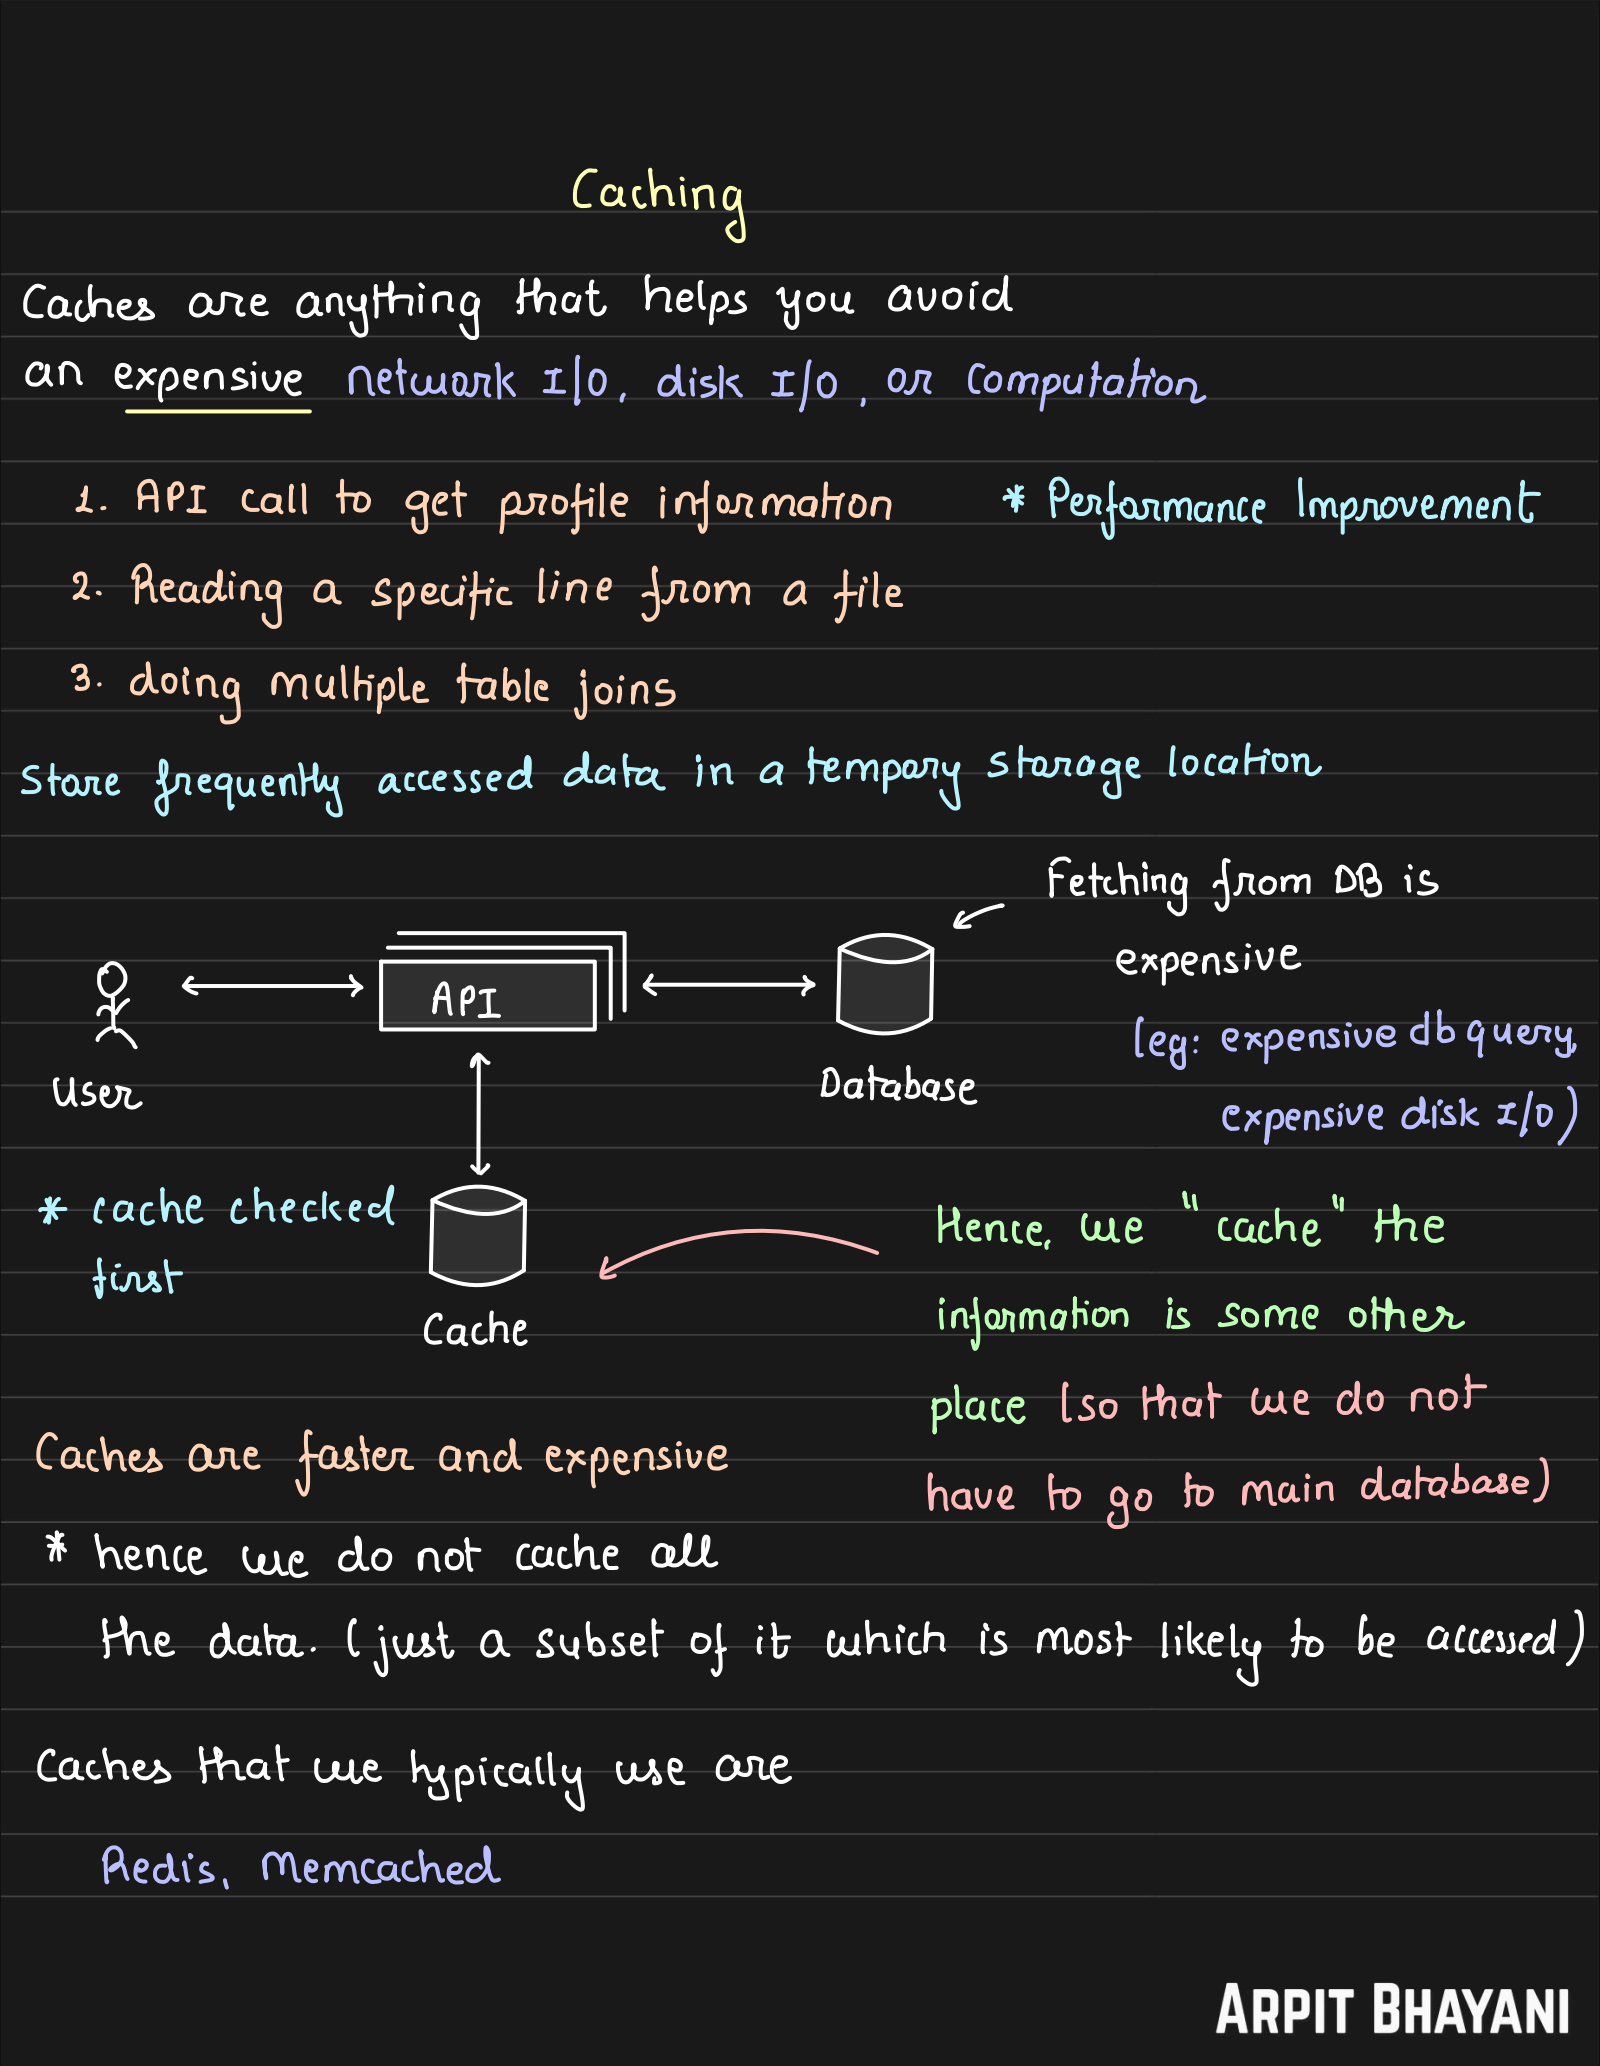 Caching
Caches are anything that helps you avoid
an expensive network I/O, disk I/O, or computation
1. API call to get profile information
* Performance Improvement
2. Reading a specific line from a file
3. doing multiple table joins
Store frequently accessed data in a tempory storage location
Fetching from DB is
expensive
(eg: expensive db query,
expensive disk I/O)
API
User
Database
* cache checked
first
Cache
Hence, we "cache" the
information is some other
place (so that we do not
have to go to main database)
Caches are faster and expensive
* hence we do not cache all
the data. (just a subset of it which is most likely to be accessed)
Caches that we typically use are
Redis, Memcached
ARPIT BHAYANI